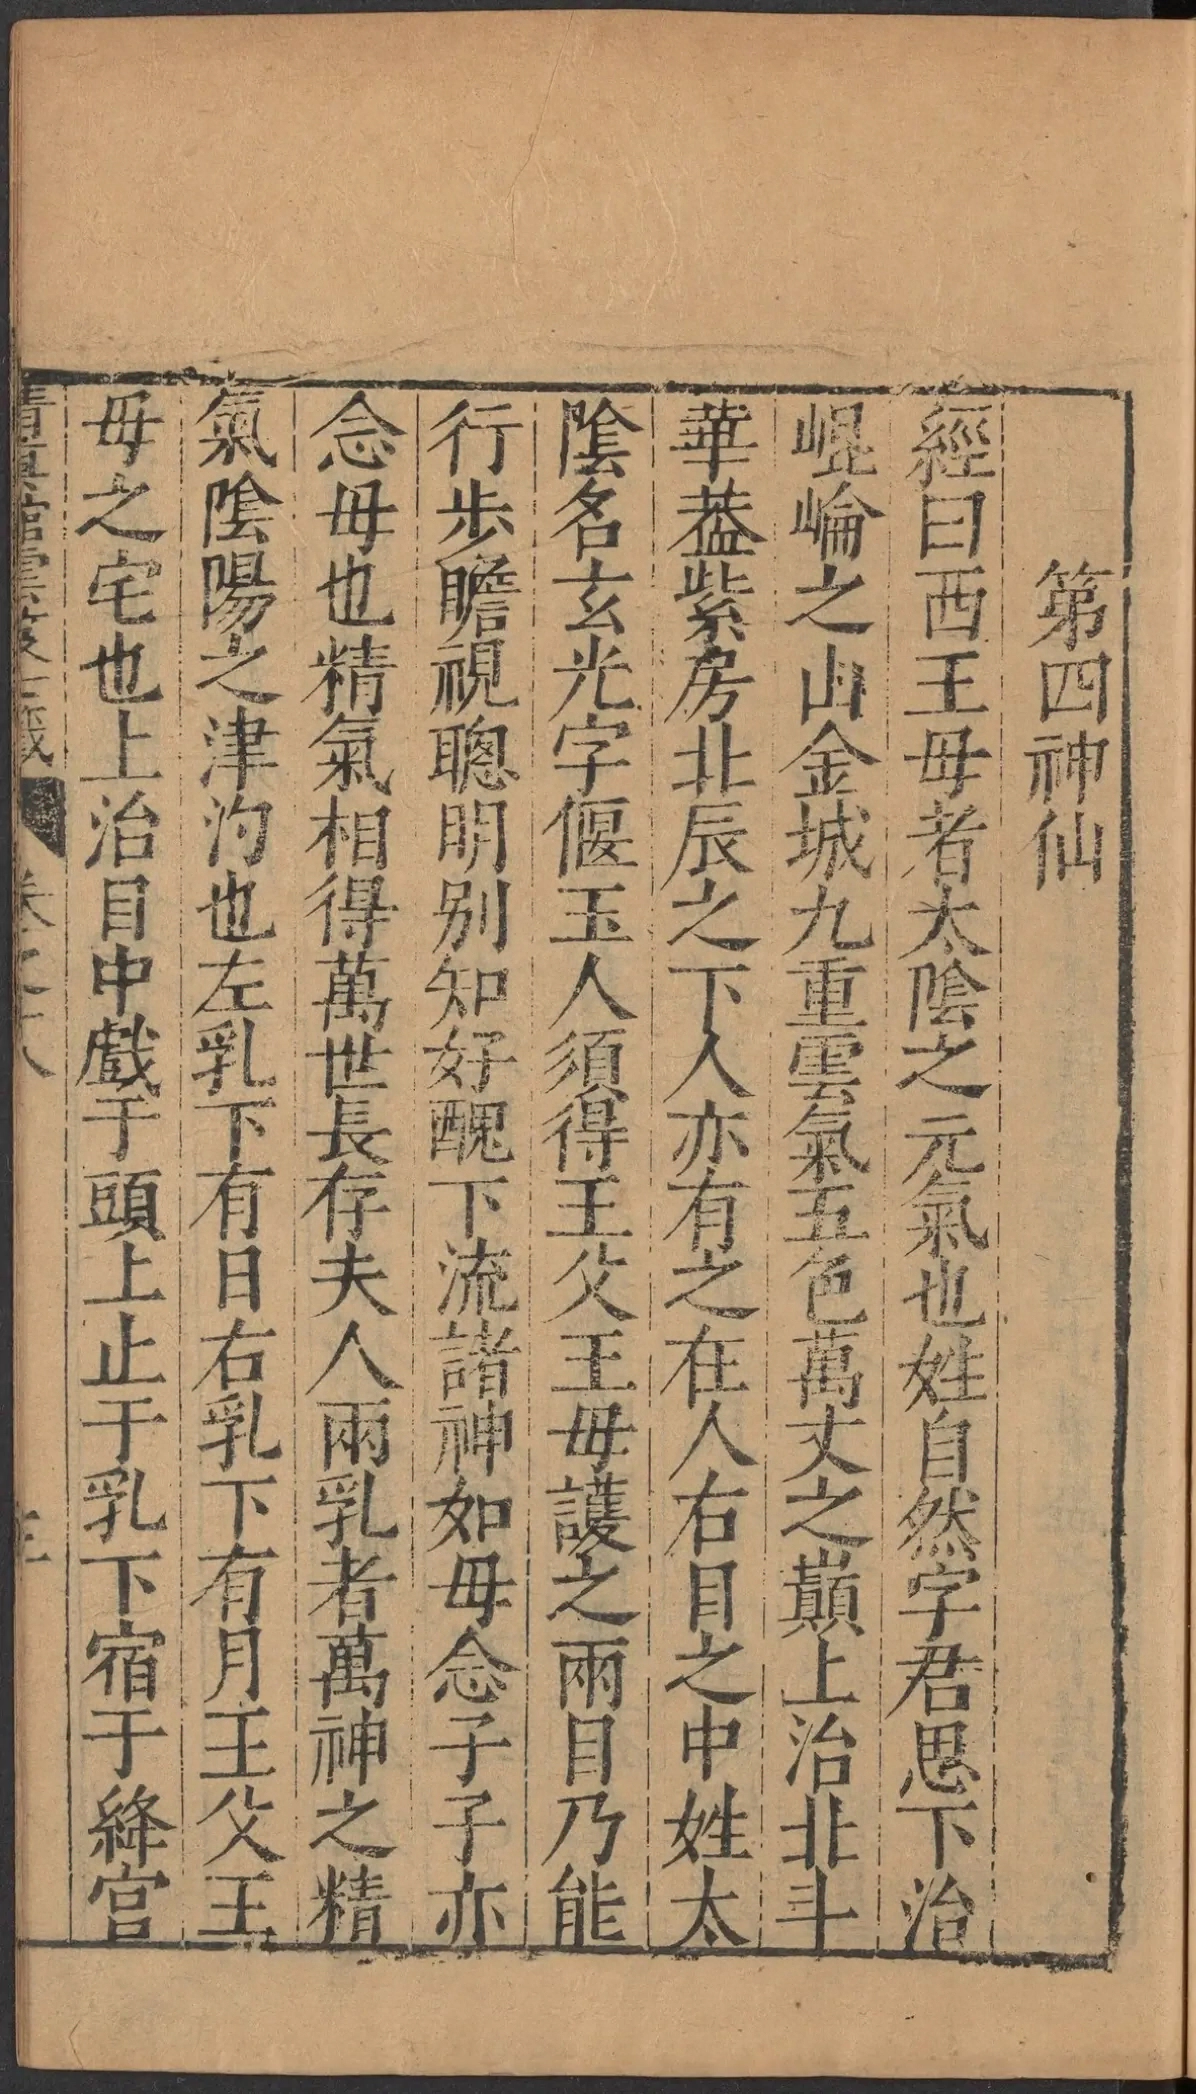 第四神仙
經曰西王母者太陰之元氣也姓自然字君思下治
崐崘之山金城九重雲氣五色萬丈之巔上治北斗
華葢紫房北辰之下人亦有之在人右目之中姓太
陰名玄光字偃玉人須得王父王母護之兩目乃能
行步瞻視聰明别知好醜下流諸神如母念子子亦
念母也精氣相得萬世長存夫人兩乳者萬神之精
氣陰陽之津汋也左乳下有日右乳下有月王父王
母之宅也上治目中戲于頭上止于乳下宿于絳宫